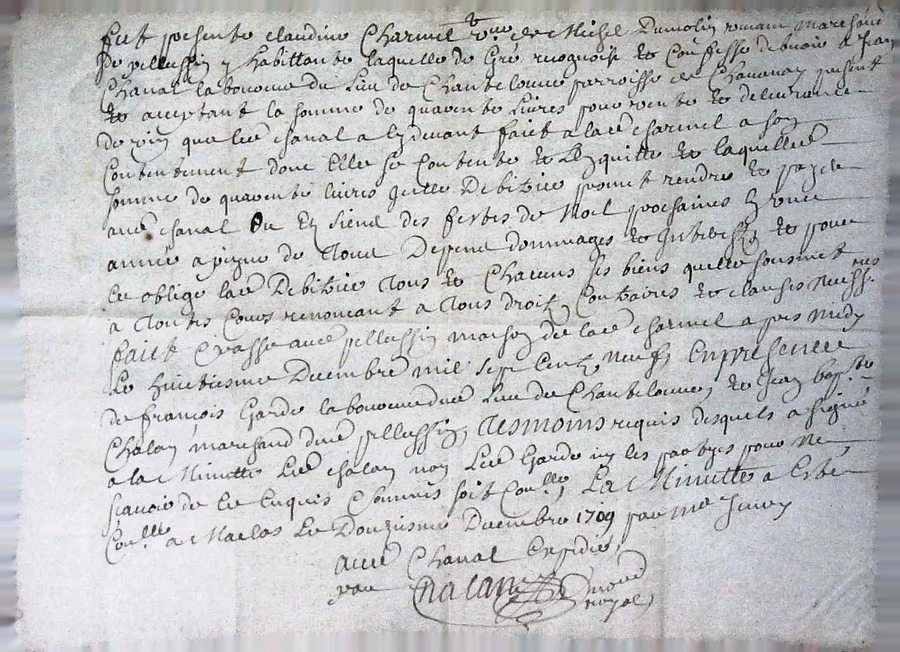 fut presente claudine Charmel vve de Michel Dumolin romain mareschal
de pellussin y habittante laquelle de Gré recognoist et Confesse debvoir a Jean
Chanal laboureur du Lieu de Chantelouve parroisse de Chavanay present
et acceptant la somme de quarente Livres pour vente et delivrance
de vin que led chanal a cydevant faict a lad charmel a son
Contentement dont Elle se Contente et quitte et laquelle
somme de quarente livres lad Debitrice promet rendre et payer
aud chanal Ou Es siens des festes de Noel prochaines En une
année a peyne de Tous Depens dommages et Interestz et pour
Ce oblige lad Debitrice Tous et Chacuns ses biens quelle sousmet
a Toutes Cours renoncant a Tous droits Contraires et clauses necess.res
faict et passe aud pellussin maison de lad charmel apres midy
Le huictiesme Decembre mil sept Centz neuf, En presence
de françois Garde laboureur dud Lieu de Chantelouve, et Jean bap.te
Chalan marchand dud pellussin, Tesmoins requis desquels a signé
a la Minutte Led chalan non Led Garde ny les partyes pour ne
scavoir de ce Enquis Commis soit Con.llé La Minutte a Esté
Con.llée a Maclas Le Douziesme Decembre 1709 par Me
Aud Chanal Expedié,
par Chalan no.re
royal